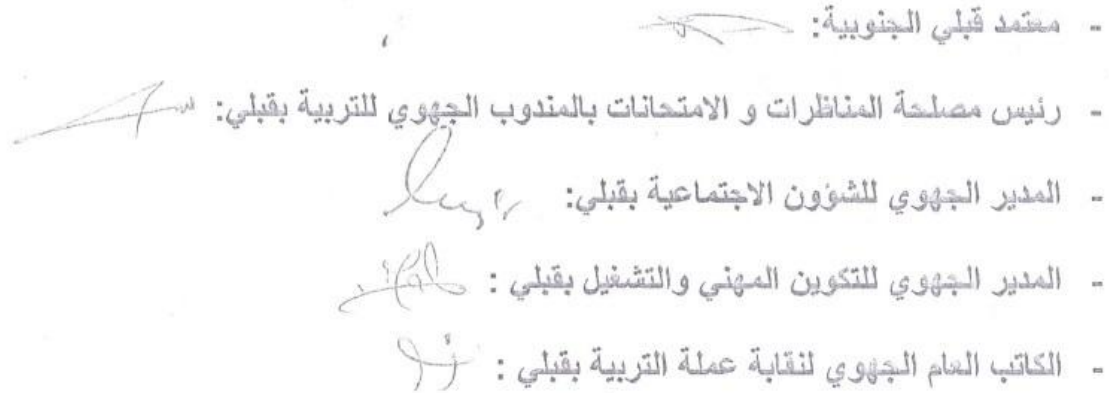 - معتمد قبلي الجنوبية:
- رئيس مصلحة المناظرات و الامتحانات بالمندوب الجهوي للتربية بقبلي:
- المدير الجهوي للشؤون الاجتماعية بقبلي:
- المدير الجهوي للتكوين المهني والتشغيل بقبلي :
- الكاتب العام الجهوي لنقابة عملة التربية بقبلي :